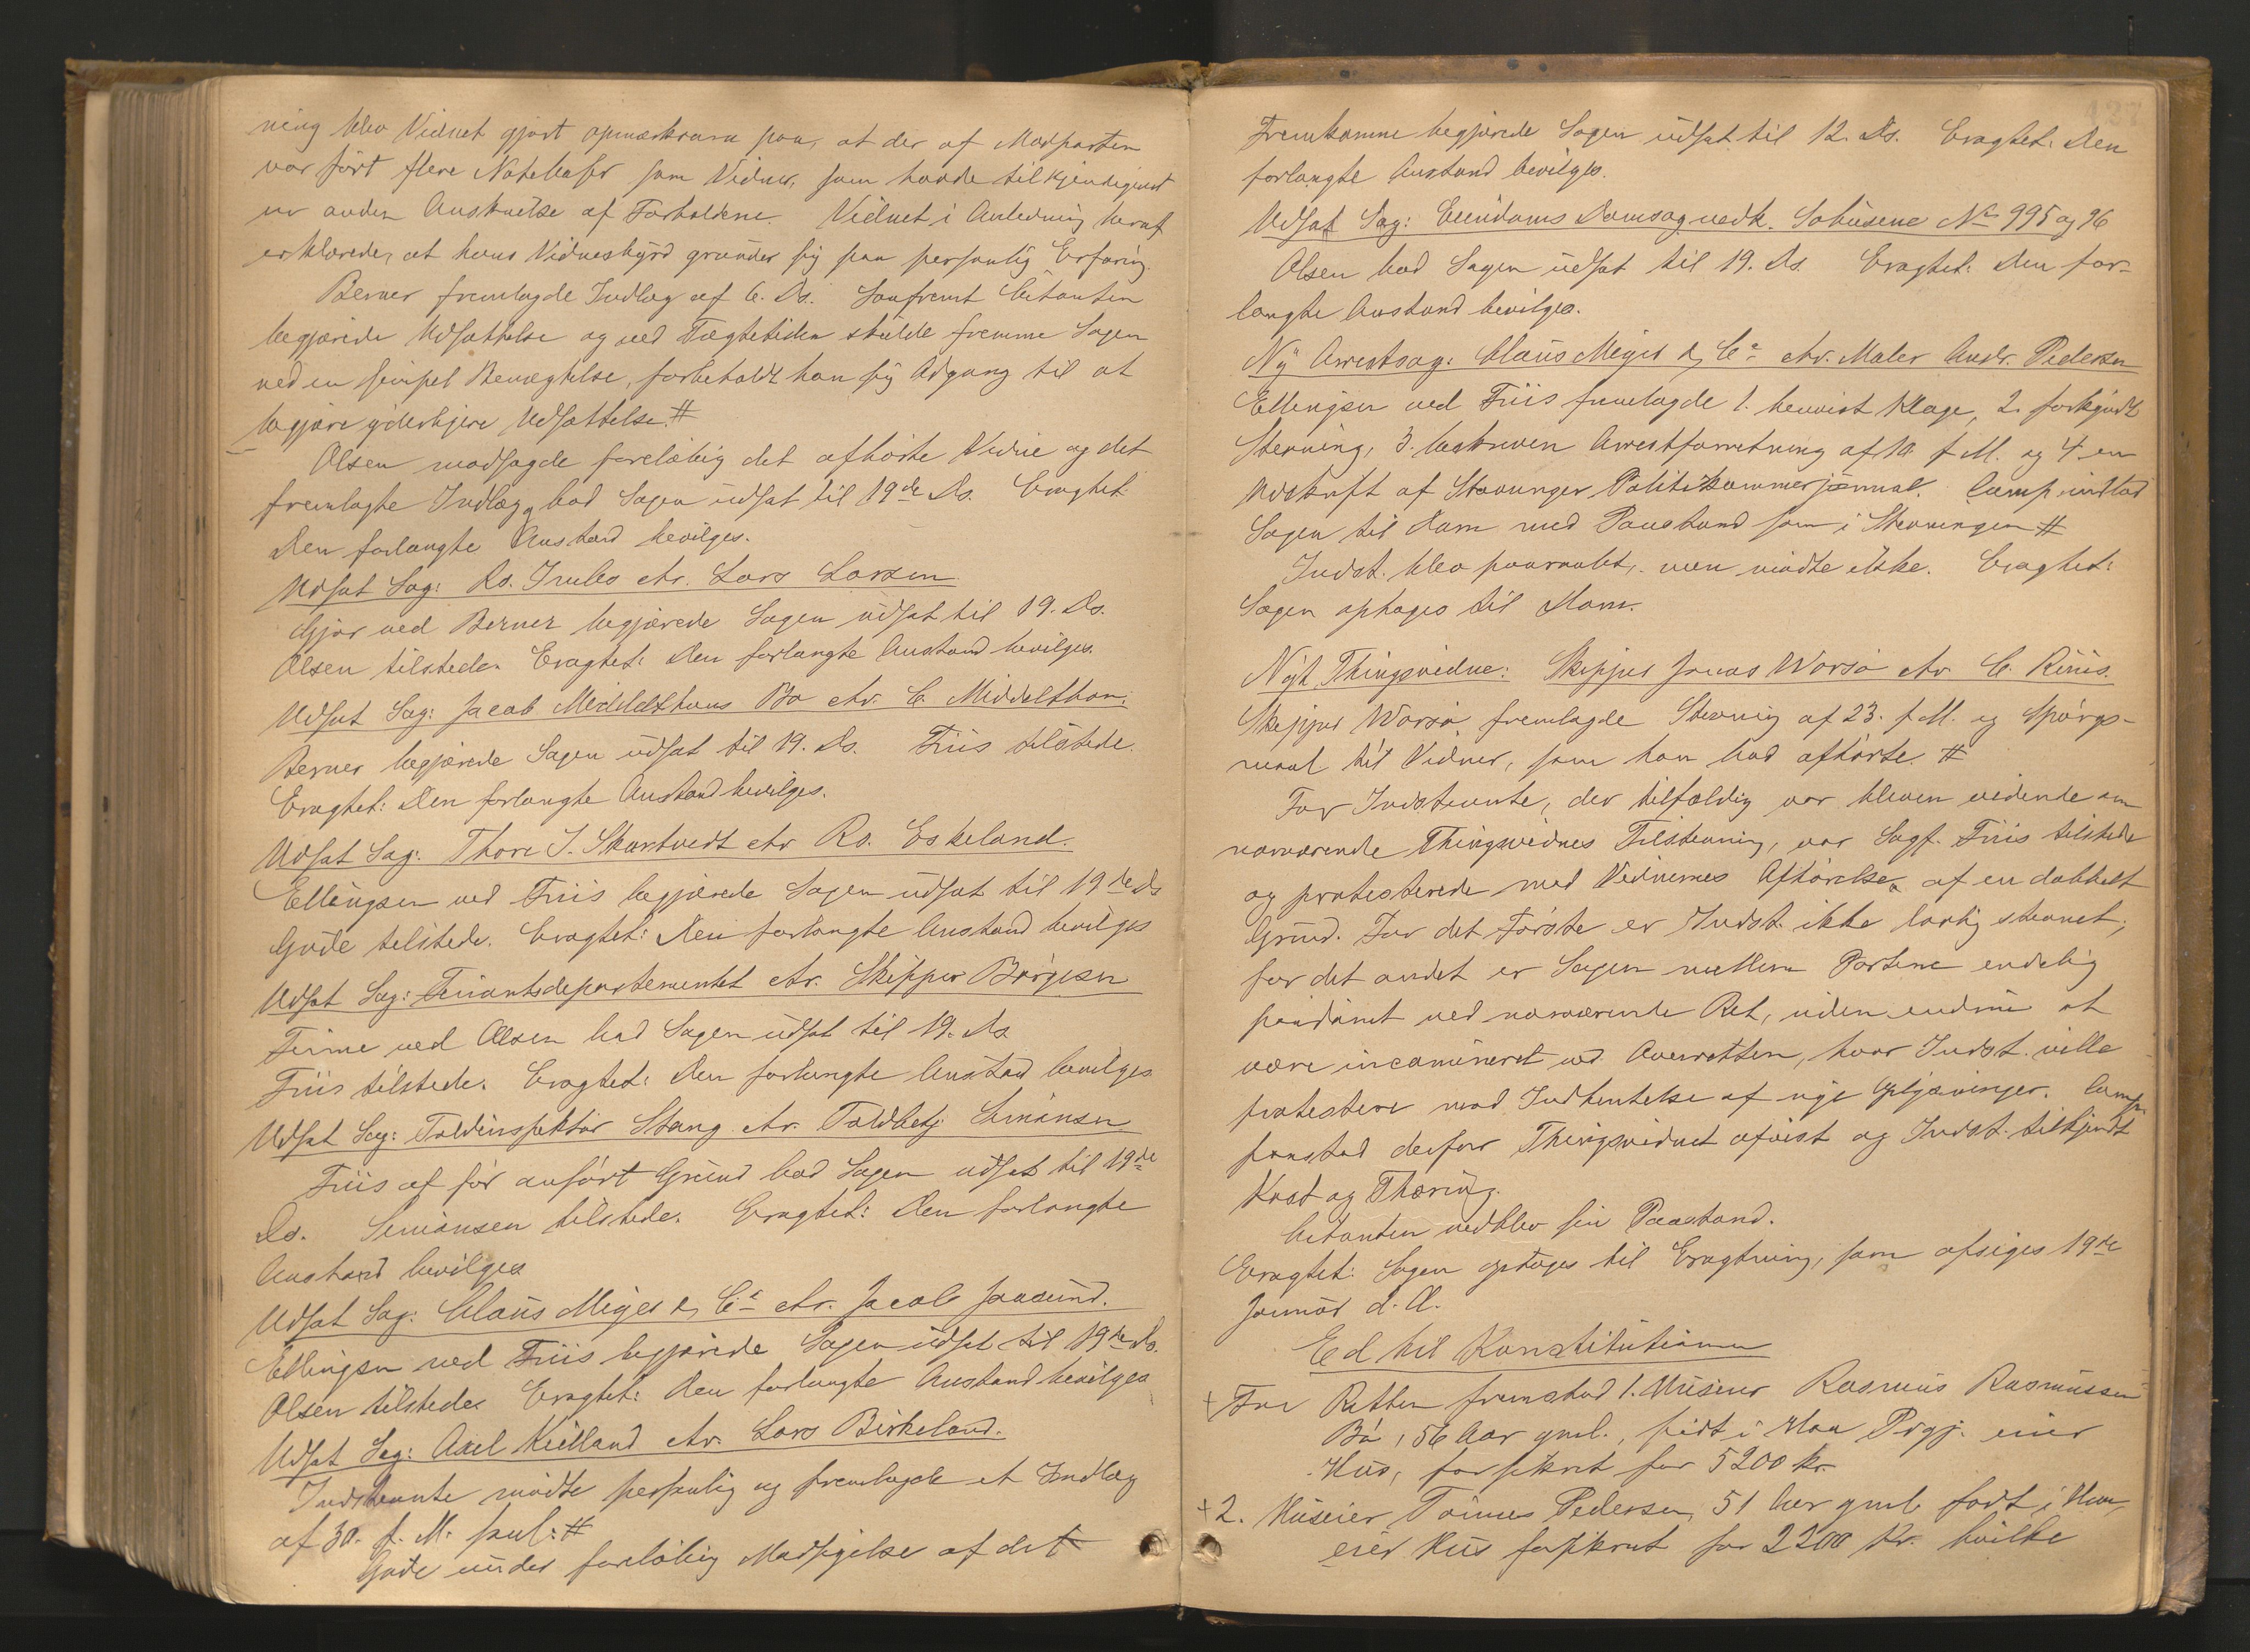 ning blev Vidnet gjort opmærksom paa, at der af Modparten
var ført flere Notabaser som Vidner, som havde tilkjendegivet
en anden Anskuelse af Forholdene. Vidnet i Anledning heraf
erklærede, at hans Vidnesbyrd grunder sig paa personlig Erfaring.
Berner fremlagde Indlæg af 6. Ds. Saafremt Citanten
begjærede Udsættelse og ved Tægtetiden skulde fremme Sagen
ved en simpel Benægtelse, forbeholdt han sig Adgang til at
begjære yderligere Udsættelse #
Olsen modsagde foreløbig det afhørte Vidne og det
fremlagte Indlæg og bad Sagen udsat til 19de Ds. Eragtet:
Den forlangte Anstand bevilges.
Udsat Sag: Rs. ctr. Lars Larsen
ved Berner begjærede Sagen udsat til 19. Ds.
Olsen tilstede. Eragtet: Den forlangte Anstand bevilges.
Udsat Sag: Jacob Middelthons Bo ctr. C. Middelthon.
Berner begjærede Sagen udsat til 19. Ds. Friis tilstede.
Eragtet: Den forlangte Anstand bevilges.
Udsat Sag: Thore J. Skartvedt ctr Rs. Eskeland.
Ellingsen ved Friis begjærede Sagen udsat til 19de Ds
Gode tilstede. Eragtet: Den forlangte Anstand bevilges
Udsat Sag: Finantsdepartementet ctr. Skipper Børgesen
Finne ved Olsen bad Sagen udsat til 19. Ds
Friis tilstede. Eragtet: Den forlangte Anstand bevilges
Udsat Sag: Toldinspektør Stang ctr. Toldbetj. Simonsen
Friis af før anført Grund bad Sagen udsat til 19de
Ds. Simonsen tilstede. Eragtet: Den forlangte
Anstand bevilges
Udsat Sag: Claus Meyer & Co ctr. Jacob Jaasund.
Ellingsen ved Friis begjærede Sagen udsat til 19de Ds.
Olsen tilstede. Eragtet: Den forlangte Anstand bevilges
Udsat Sag: Axel Kielland ctr. Lars Birkeland.
Indstevnte mødte personlig og fremlagde et Indlæg
af 30. f. M. saal: #
Gode under foreløbig Modsigelse af det
Fremkomne begjærede Sagen udsat til 12. Ds. Eragtet: Den
forlangte Anstand bevilges.
Udsat Sag: Eiendoms Domsag vedk. Søhusene No 995 og 96
Olsen bad Sagen udsat til 19. Ds. Eragtet: Den for-
langte Anstand bevilges.
Ny Arrestsag: Claus Meyer & Co ctr. Maler Andr. Pedersen
Ellingsen ved Friis fremlagde 1. henvist Klage, 2. forkyndt
Stevning, 3. beskreven Arrestforretning af 10 f. M. og 4 en
Udskrift af Stavanger Politikammerjournal. Comp. indlod
Sagen til Dom med Paastand som i Stevningen #
Indst. blev paaraabt, men mødte ikke. Eragtet:
Sagen optages til Dom.
Nyt Thingsvidne: Skipper Jonas Worsø ctr C. Riis.
Skipper Worsø fremlagde Stevning af 23. f. M. og Spørgs-
maal til Vidner, som han bad afhørte. #
For Indstevnte, der tilfældig var bleven vidende om
nærværende Thingsvidnes Tilstevning, var Sagf. Friis tilstede
og protesterede mod Vidnernes Afhørelse af en dobbelt
Grund. For det Første er Indst. ikke lovlig stevnet;
for det andet er Sagen mellem Parterne endelig
paadømt ved nærværende Ret, uden endnu at
være incamineret ved Overretten, hvor Indst. ville
protestere mod Indhentelse af nye Oplysninger. Comp.
paastod derfor Thingsvidnet afvist og Indst. tilkjendt
Kost og Tæring.
Citanten vedblev sin Paastand.
Eragtet: Sagen optages til Eragtning, som afsiges 19de
Januar d. A.
Ed til Konstitutionen
+ For Retten fremstod 1. Huseier Rasmus Rasmussen
Bø, 56 Aar gml., født i Haa Prgj. eier
Hus, forsikret for 5200 kr.
+ 2. Huseier Tønnes Pedersen, 51 Aar gml. født i Haa,
eier Hus forsikret for 2200 Kr. hvilke